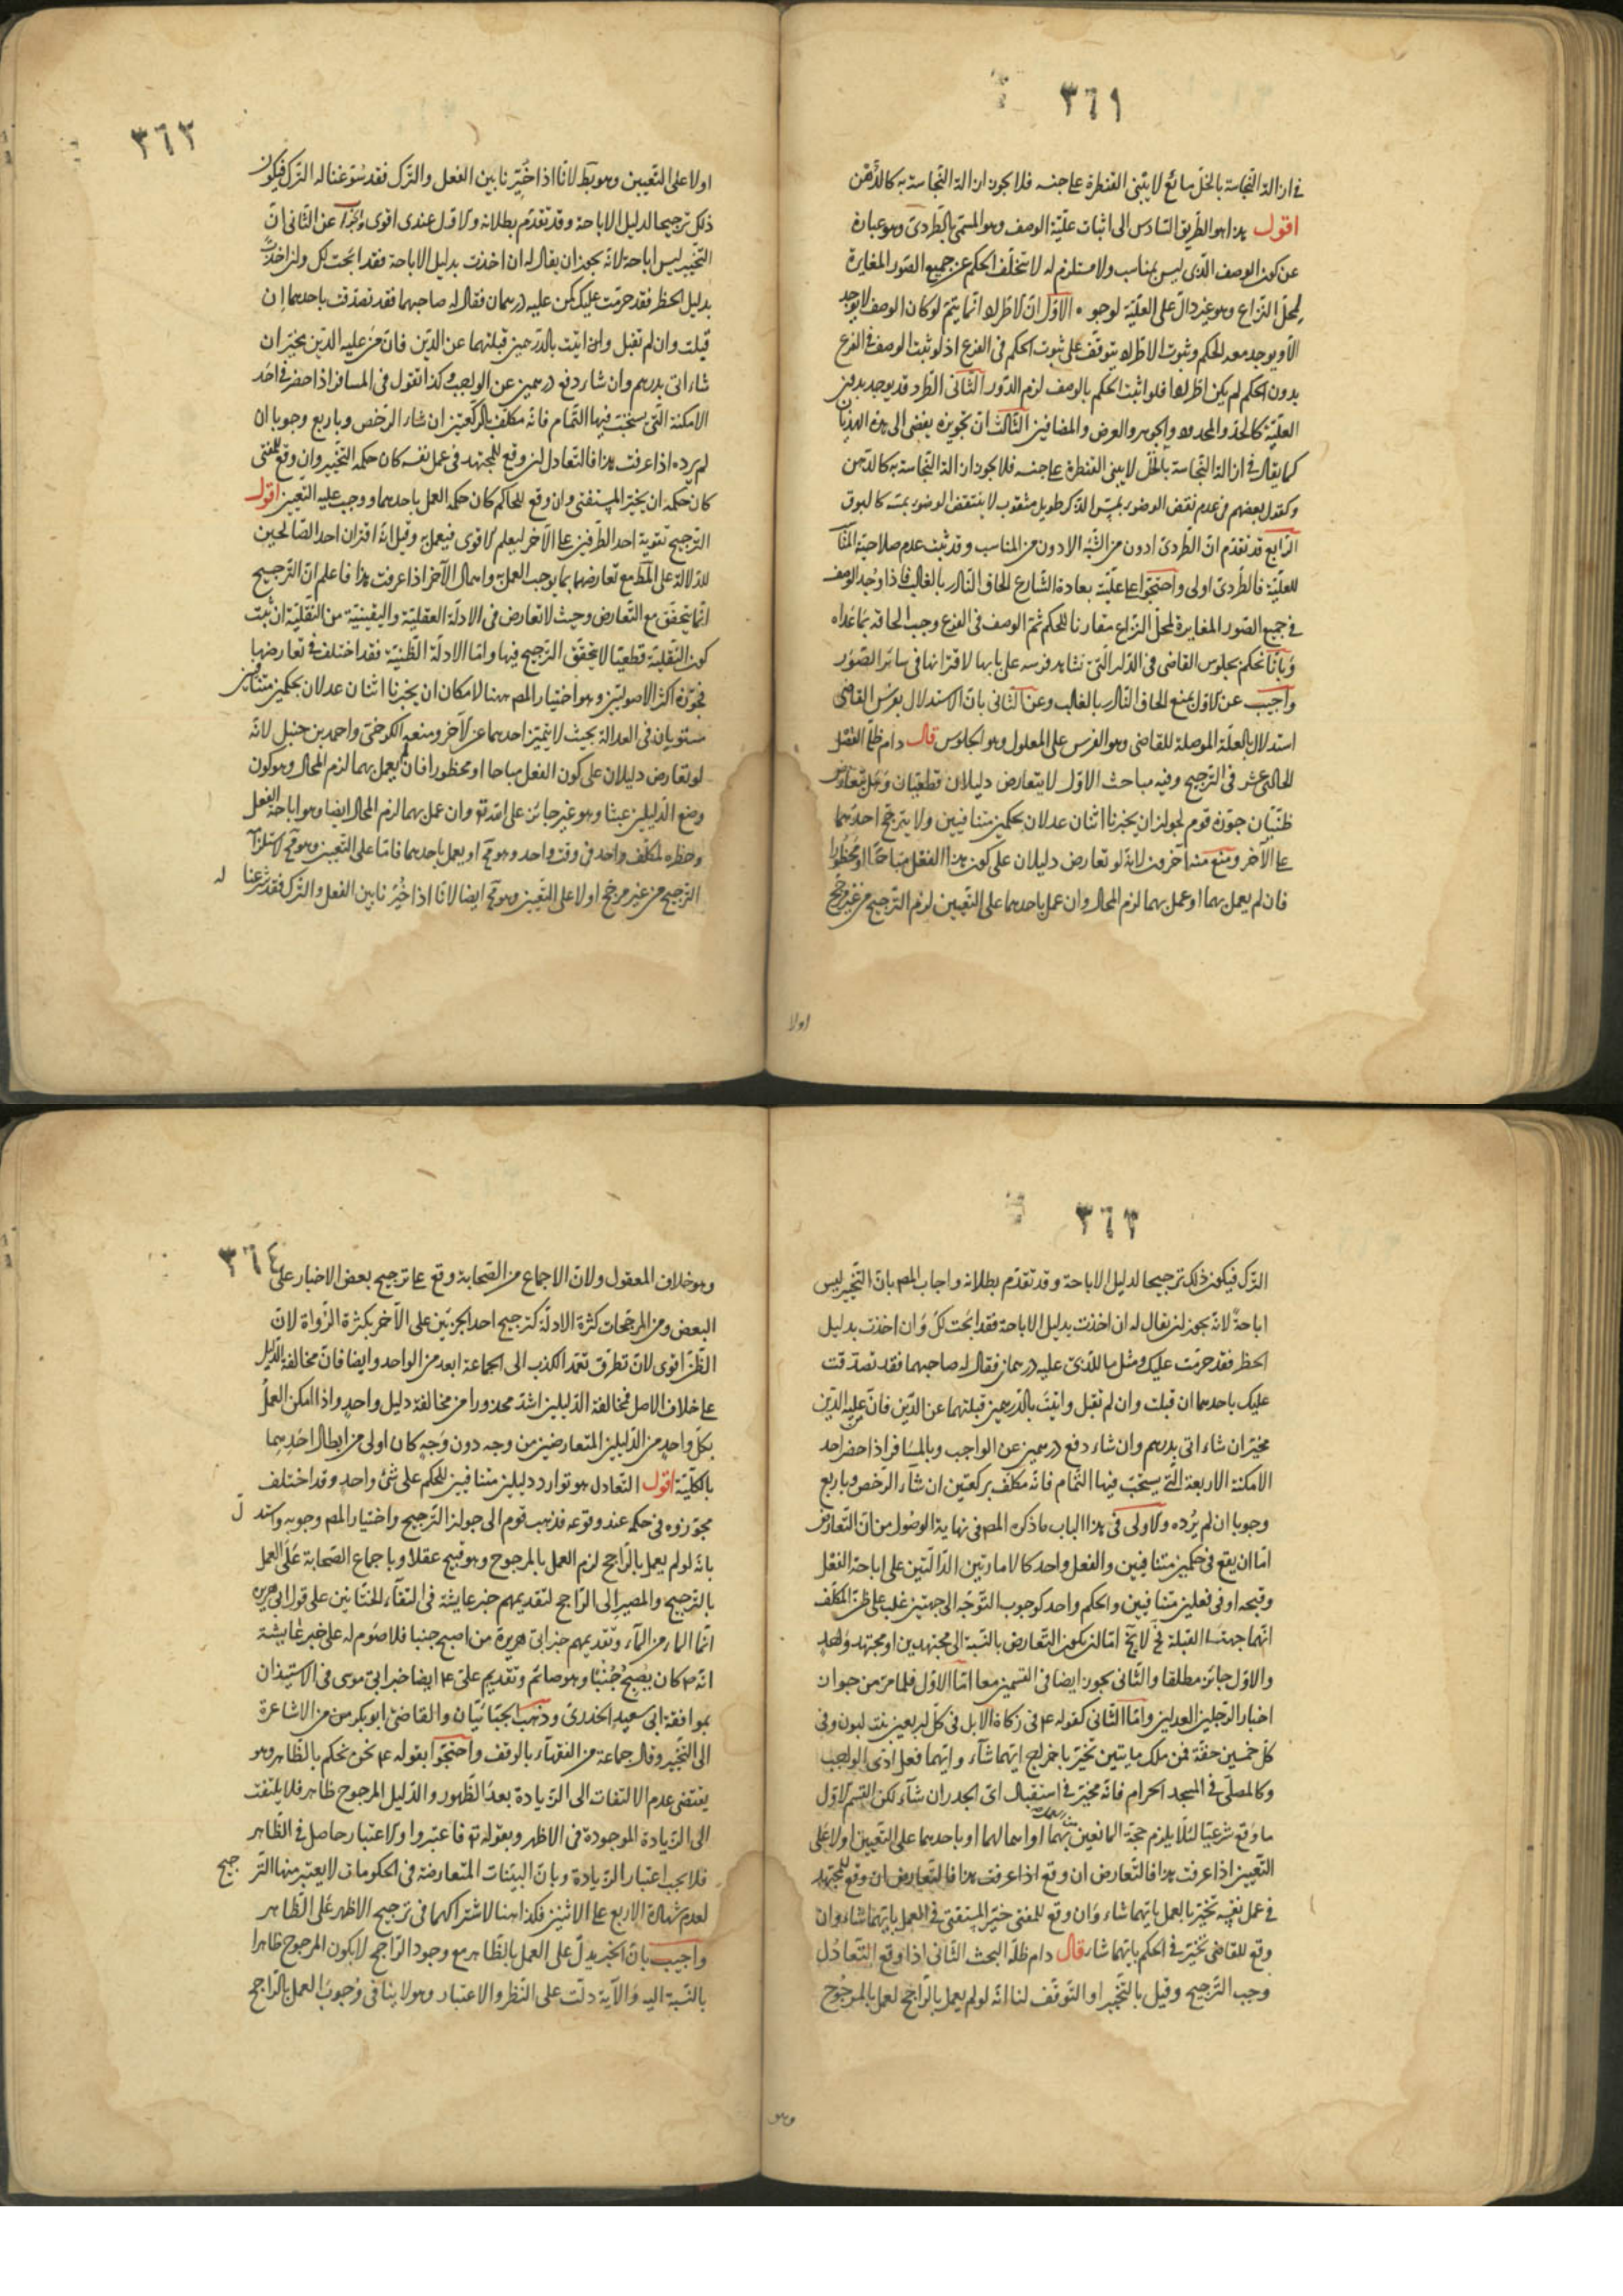 ٣٦١
في ازالة النجاسة بالخل مائع لا يبنى القنطرة على جنسه فلا يجوز ازالة النجاسة به كالدهن
اقول هذا هو الطريق السادس الى اثبات علّيّة الوصف وهو المسمّى بالطردىّ وهو عبارة
عن كون الوصف الذى ليس بمناسب ولا مستلزم له لا يتخلّف الحكم عن جميع الصور المغايرة
لمحلّ النزاع وهو غير دالّ على العلّيّة لوجوه الاوّل انّ الاطّراد انّما يتمّ لو كان الوصف لا يوجد
الّا ويوجد معه الحكم وثبوت الاطّراد يتوقّف على ثبوت الحكم فى الفرع اذ لو ثبت الوصف فى الفرع
بدون الحكم لم يكن اطّراد فلو اثبت الحكم بالوصف لزم الدّور الثانى الطّرد قد يوجد بدون
العلّيّة كالحدّ والمحدود والجوهر والعرض والمضافين الثالث انّ تجويزه يفضى الى هذا الهذيان
كما يقال فى ازالة النجاسة بالخلّ لا يبنى القنطرة على جنسه فلا يجوز ازالة النجاسة به كالدهن
وكقول بعضهم فى عدم نقض الوضوء بمسّ الذّكر طويل مثقوب لا ينتقض الوضوء بمسّه كالبوق
الرّابع قد تقدّم انّ الطّردىّ ادون من الشّبه الادون من المناسب وقد ثبت عدم صلاحيّة المناسب
للعلّيّة فالطّردىّ اولى واحتجّوا على علّيّته بعادة الشّارع الحاق النّادر بالغالب فاذا وجد الوصف
فى جميع الصّور المغايرة لمحلّ النّزاع مقارنا للحكم ثمّ الوصف فى الفرع وجب الحاقه بما عداه
وبانّا نحكم بجلوس القاضى فى الدّار الّتى نشاهد فرسه على بابها لاقترانهما فى سائر الصّور
واجيب عن الاوّل بمنع الحاق النّادر بالغالب وعن الثانى بانّ الاستدلال بفرس القاضى
استدلال بالعلّة الموصلة للقاضى وهو الفرس على المعلول وهو الجلوس قال دام ظلّه الفصل
الحادى عشر فى الترجيح وفيه مباحث الاوّل لا يتعارض دليلان قطعيّان وهل يتعارض
ظنّيّان جوّزه قوم لجواز ان يخبرنا اثنان عدلان بحكمين متنافيين ولا يترجّح احدهما
على الآخر ومنع منه آخرون لانّه لو تعارض دليلان على كون هذا الفعل مباحًا او محظورًا
فان لم يعمل بهما او عمل بهما لزم المحال وان عمل باحدهما على التعيين لزم الترجيح من غير مرجّح
اولا
٣٦٢
اولا على التعيين وهو بط لانّا اذا خيّرنا بين الفعل والترك فقد سوّغنا له الترك فيكون
ذلك ترجيحا لدليل الاباحة وقد تقدّم بطلانه والاوّل عندى اقوى والجواب عن الثانى انّ
التخيير ليس اباحة لانّه يجوز ان يقال له ان اخذت بدليل الاباحة فقد ابحت لك وان اخذت
بدليل الحظر فقد حرّمت عليك كمن عليه درهمان فقال له صاحبهما فقد تصدّقت باحدهما ان
قبلت وان لم تقبل وان اتيت بالدّرهمين قبلتهما عن الدّين فانّ من عليه الدّين مخيّر ان
شاء اتى بدرهم وان شاء دفع درهمين عن الواجب وكذا نقول فى المسافر اذا حضر فى احد
الامكنة الّتى يستحبّ فيها التّمام فانّه مكلّف بالركعتين ان شاء الترخّص وباربع وجوبا ان
لم يرده اذا عرفت هذا فالتعادل ان وقع للمجتهد فى عمل نفسه كان حكمه التخيير وان وقع للمفتى
كان حكمه ان يخيّر المستفتى وان وقع للحاكم كان حكمه العمل باحدهما ووجب عليه التعيين اقول
الترجيح تقوية احد الطّرفين على الآخر ليعلم الاقوى فيعمل به وقيل انه اقتران احد الصّالحين
للدّلالة على المط مع تعارضهما بما يوجب العمل به واهمال الآخر اذا عرفت هذا فاعلم انّ الترجيح
انّما يتحقّق مع التّعارض وحيث لا تعارض فى الادلّة العقليّة واليقينيّة من النّقليّة ان ثبت
كون النّقليّة قطعيّا لا يتحقّق الترجيح فيها وامّا الادلّة الظّنيّة فقد اختلف فى تعارضها
فجوّزه اكثر الاصوليّين وهو اختيار المص ههنا لامكان ان يخبرنا اثنان عدلان بحكمين متنافيين
مستويان فى العدالة بحيث لا يتميّز احدهما عن الآخر ومنعه الكرخىّ واحمد بن حنبل لانّه
لو تعارض دليلان على كون الفعل مباحا او محظورا فان لم يعمل بهما لزم المحال وهو كون
وضع الدّليلين عبثا وهو غير جائز على الله تع وان عمل بهما لزم المحال ايضا وهو اباحة الفعل
وحظره لمكلّف واحد فى وقت واحد وهو مح او يعمل باحدهما فامّا على التعيين وهو مح لاستلزامه
الترجيح من غير مرجّح اولا على التعيين وهو مح ايضا لانّا اذا خيّرنا بين الفعل والترك فقد شرعنا له
٣٦٣
الترك فيكون ذلك ترجيحا لدليل الاباحة وقد تقدّم بطلانه واجاب المص بانّ التخيير ليس
اباحةً لانّه يجوز ان يقال له ان اخذت بدليل الاباحة فقد ابحت لك وان اخذت بدليل
الحظر فقد حرّمت عليك ومثل هنا للذى عليه درهمان فقال له صاحبهما فقد تصدّقت
عليك باحدهما ان قبلت وان لم تقبل واتيت بالدّرهمين قبلتهما عن الدّين فانّ من عليه الدّين
مخيّر ان شاء اتى بدرهم وان شاء دفع درهمين عن الواجب وبالمسافر اذا حضر احد
الامكنة الاربعة الّتى يستحبّ فيها التّمام فانّه مكلّف بركعتين ان شاء الترخّص وباربع
وجوبا ان لم يرده والاولى فى هذا الباب ما ذكره المص فى نهاية الوصول من انّ التّعارض
امّا ان يقع فى حكمين متنافيين والفعل واحد كالامارتين الدّالّتين على اباحة الفعل
وقبحه او فى فعلين متنافيين والحكم واحد كوجوب التّوجّه الى جهتين غلب على ظنّ المكلّف
انّهما جهتا القبلة فح لا يخ امّا ان يكون التّعارض بالنّسبة الى مجتهدين او مجتهد واحد
والاوّل جائز مطلقا والثّانى يجوز ايضا فى القسمين معا امّا الاوّل فلما مرّ من جواز
اخبار الرّجلين العدلين وامّا الثّانى كقوله ع فى زكاة الابل فى كلّ اربعين بنت لبون وفى
كلّ خمسين حقّة فمن ملك مايتين تخيّر باخراج ايّهما شاء وايّهما فعل ادّى الواجب
وكالمصلّى فى المسجد الحرام فانّه مخيّر فى استقبال اىّ الجدران شاء لكن القسم الاوّل
ما وقع شرعيّا لئلّا يلزم حجّة المانعين بهما او اهمالهما او باحدهما على التعيين اولا على
التعيين اذا عرفت هذا فالتّعارض ان وقع اذا عرفت هذا فالتعارض ان وقع للمجتهد
فى عمل نفسه تخيّر بالعمل بايّهما شاء وان وقع للمفتى خيّر المستفتى فى العمل بايّهما شاء وان
وقع للقاضى تخيّر فى الحكم بايّهما شاء قال دام ظلّه البحث الثّانى اذا وقع التعادل
وجب الترجيح وقيل بالتخيير او التوقّف لنا انّه لو لم يعمل بالرّاجح لعمل بالمرجوح
وهو
٣٦٤
وهو خلاف المعقول ولانّ الاجماع من الصّحابة وقع على ترجيح بعض الاخبار على
البعض ومن المرجّحات كثرة الادلّة كترجيح احد الخبرين على الآخر بكثرة الرّواة لانّ
الظّنّ اقوى لانّ تطرّق تعمّد الكذب الى الجماعة ابعد من الواحد وايضا فانّ مخالفة الدّليل
على خلاف الاصل فمخالفة الدّليلين اشدّ محذورا من مخالفة دليل واحد واذا امكن العمل
بكلّ واحد من الدّليلين المتعارضين من وجه دون وجه كان اولى من ابطال احدهما
بالكلّيّة اقول التّعادل هو توارد دليلين متنافيين للحكم على شئ واحد وقد اختلف
مجوّزوه فى حكمه عند وقوعه فذهب قوم الى جواز الترجيح واختيار المص وجوبه واستدل
بانّه لو لم يعمل بالرّاجح لزم العمل بالمرجوح وهو قبيح عقلا وباجماع الصّحابة على العمل
بالترجيح والمصير الى الرّاجح لتقديمهم خبر عايشة فى التقاء الختانين على قول ابى هريرة
انّما الماء من الماء وتقديمهم خبر ابى هريرة من اصبح جنبا فلا صوم له على خبر عايشة
انّه ص كان يصبح جنبًا وهو صائم وتقديم علىّ ع ايضا خبر ابى موسى فى الاستيذان
بموافقة ابى سعيد الخدرىّ وذهب الجبّائيّان والقاضى ابو بكر من من الاشاعرة
الى التّخيير وقال جماعة من الفقهاء بالوقف واحتجّوا بقوله ع نحن نحكم بالظّاهر وهو
يقتضى عدم الالتفات الى الزيادة بعد الظّهور والدّليل المرجوح ظاهر فلا يلتفت
الى الزيادة الموجودة فى الاظهر وبقوله تع فاعتبروا والاعتبار حاصل فى الظّاهر
فلا يجب اعتبار الزيادة وبانّ البيّنات المتعارضة فى الحكومات لا يعتبر منها الترجيح
لعدم شهادة الاربع على الاثنين فكذا هنا لاشتراكهما فى ترجيح الاظهر على الظّاهر
واجيب بانّ الخبر يدلّ على العمل بالظّاهر مع وجود الرّاجح لا يكون المرجوح ظاهرا
بالنّسبة اليه والآية دلّت على النّظر والاعتبار وهو لا ينافى وجوب العمل بالرّاجح